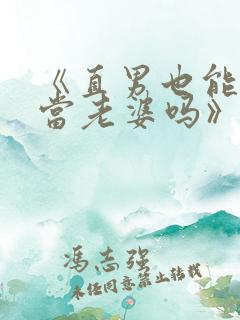 《直男也能
當老婆吗》
冯志强
未经同意禁止转载